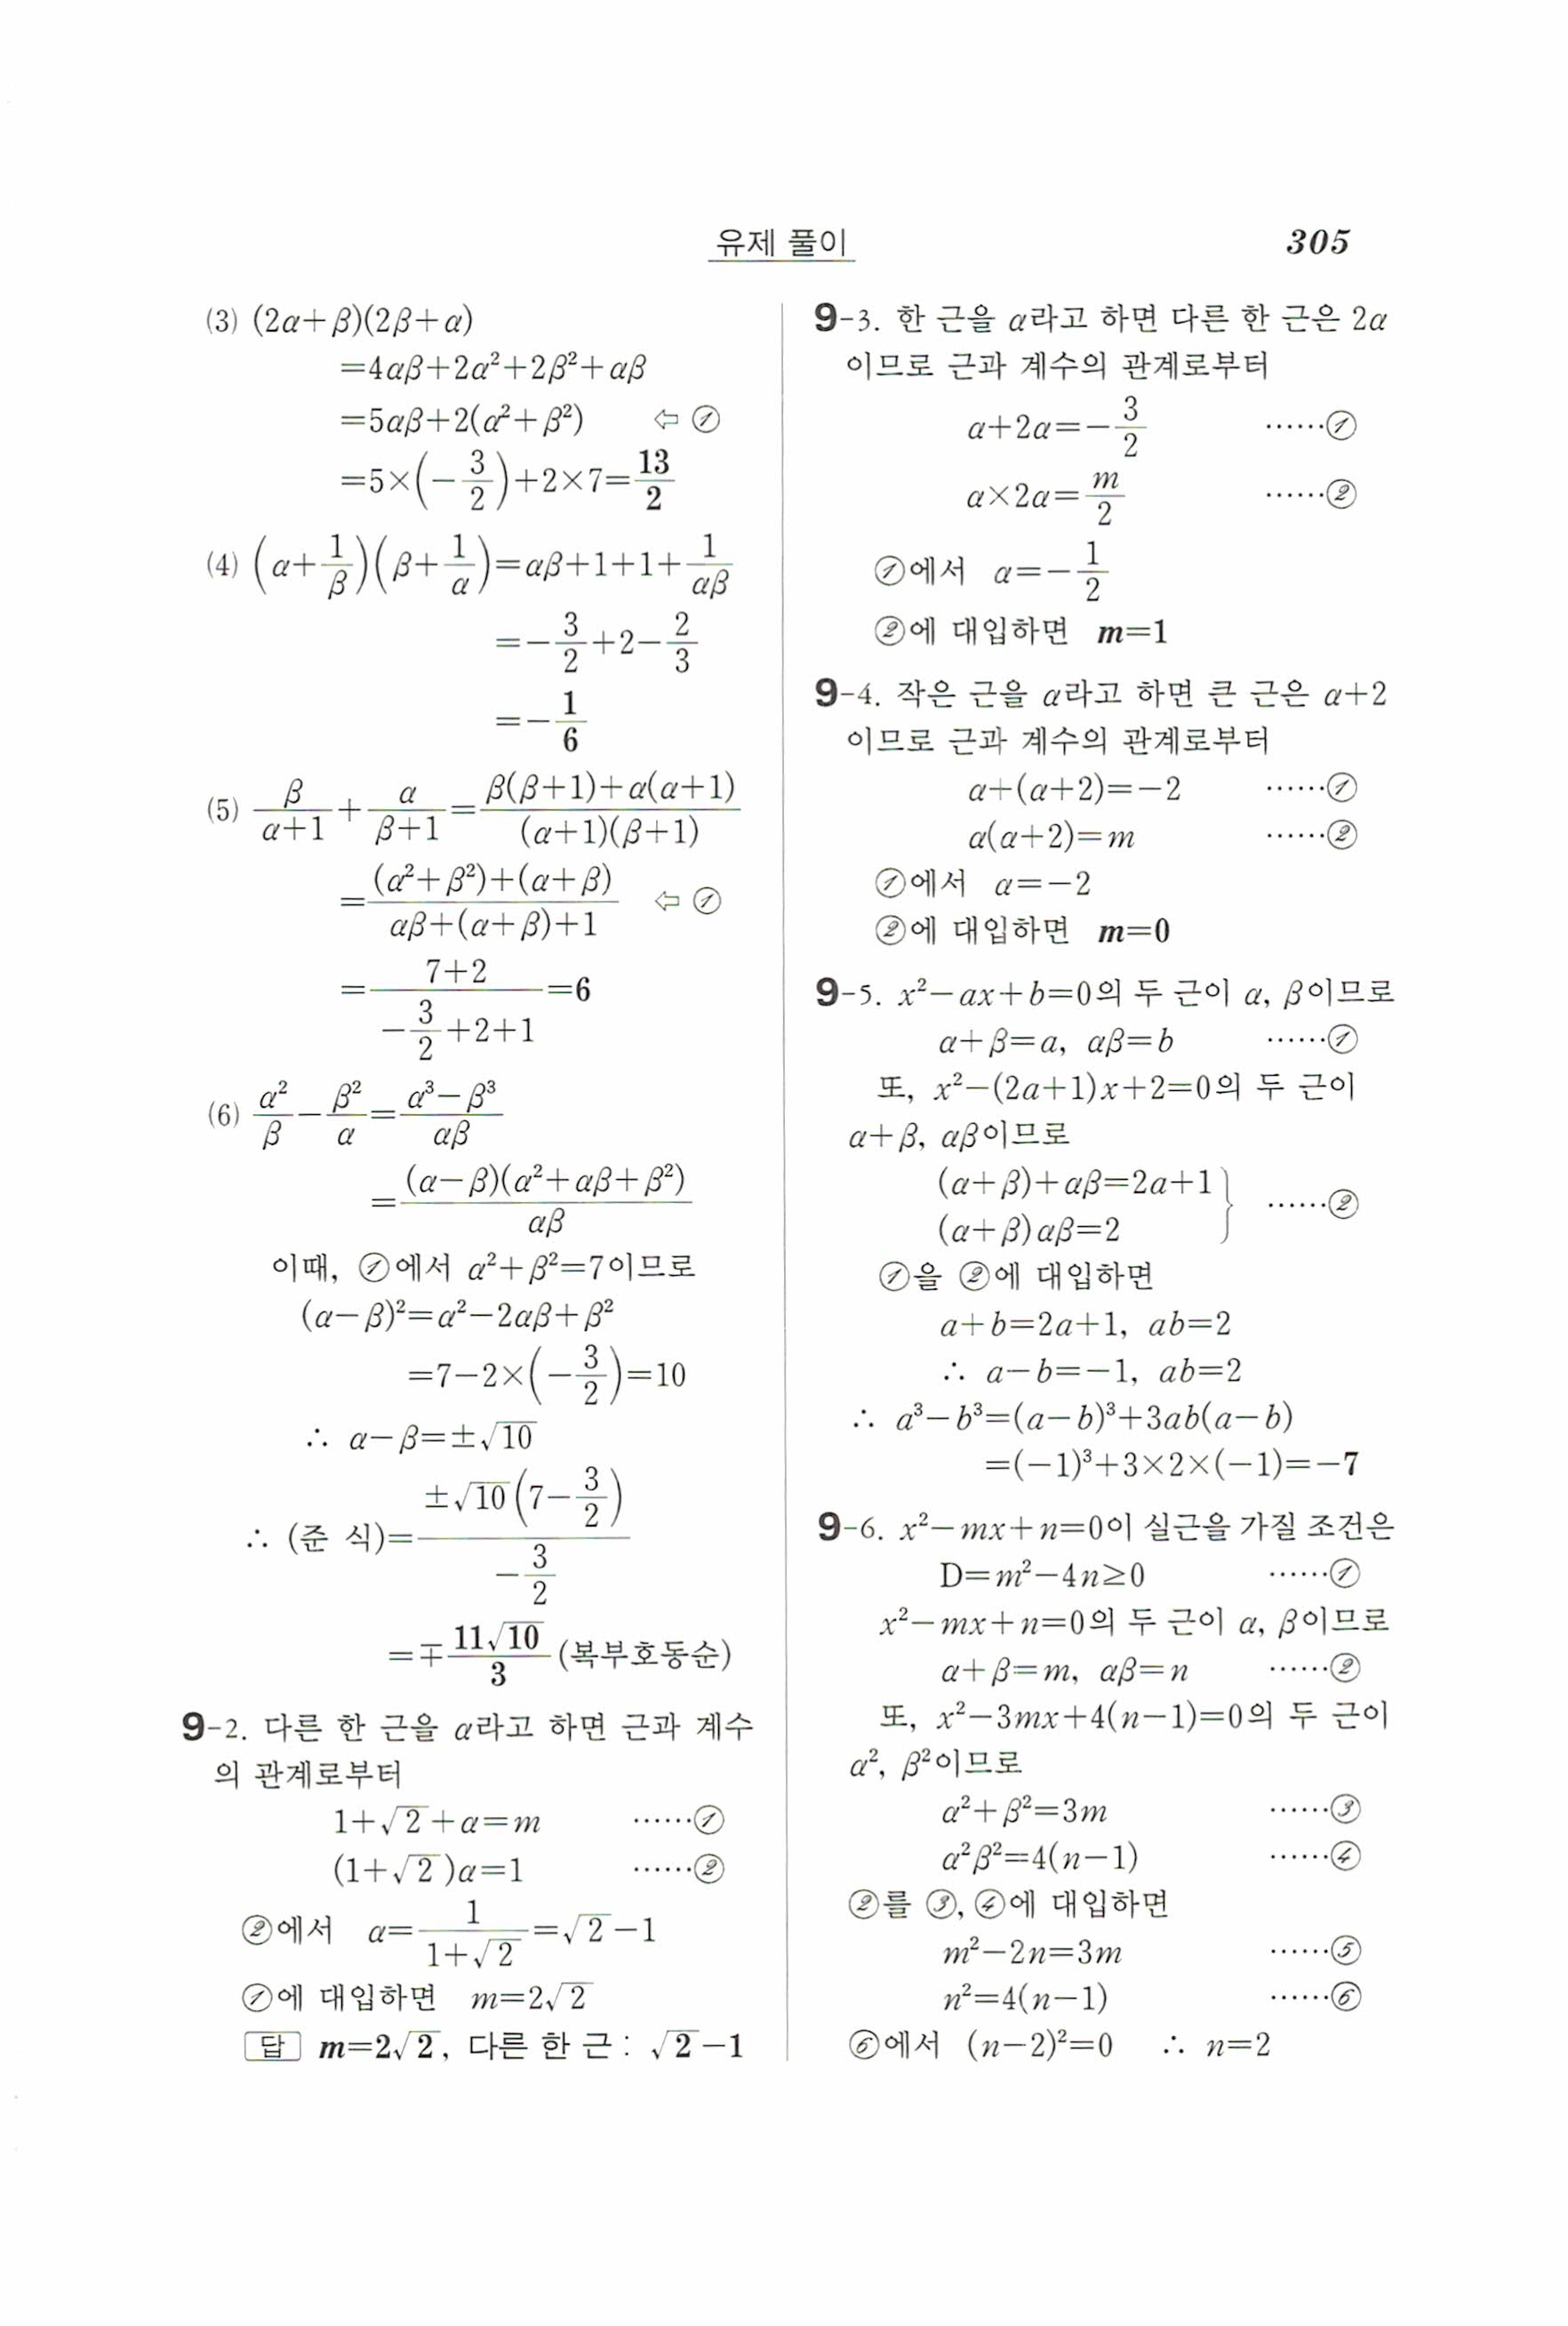 유제 풀이 305
(3) (2α+β)(2β+α)
=4αβ+2α²+2β²+αβ
=5αβ+2(α²+β²) ⇦ ①
=5×(−3/2)+2×7=13/2
(4) (α+1/β)(β+1/α)=αβ+1+1+1/αβ
=−3/2+2−2/3
=−1/6
(5) β/(α+1)+α/(β+1)=(β(β+1)+α(α+1))/((α+1)(β+1))
=((α²+β²)+(α+β))/(αβ+(α+β)+1) ⇦ ①
=(7+2)/(−3/2+2+1)=6
(6) α²/β−β²/α=(α³−β³)/αβ
=((α−β)(α²+αβ+β²))/αβ
이때, ①에서 α²+β²=7이므로
(α−β)²=α²−2αβ+β²
=7−2×(−3/2)=10
∴ α−β=±√10
∴ (준 식)=(±√10(7−3/2))/(−3/2)
=∓11√10/3 (복부호동순)
9-2. 다른 한 근을 α라고 하면 근과 계수
의 관계로부터
1+√2+α=m ……①
(1+√2)α=1 ……②
②에서 α=1/(1+√2)=√2−1
①에 대입하면 m=2√2
답 m=2√2, 다른 한 근 : √2−1
9-3. 한 근을 α라고 하면 다른 한 근은 2α
이므로 근과 계수의 관계로부터
α+2α=−3/2 ……①
α×2α=m/2 ……②
①에서 α=−1/2
②에 대입하면 m=1
9-4. 작은 근을 α라고 하면 큰 근은 α+2
이므로 근과 계수의 관계로부터
α+(α+2)=−2 ……①
α(α+2)=m ……②
①에서 α=−2
②에 대입하면 m=0
9-5. x²−ax+b=0의 두 근이 α, β이므로
α+β=a, αβ=b ……①
또, x²−(2a+1)x+2=0의 두 근이
α+β, αβ이므로
(α+β)+αβ=2a+1
(α+β)αβ=2 } ……②
①을 ②에 대입하면
a+b=2a+1, ab=2
∴ a−b=−1, ab=2
∴ a³−b³=(a−b)³+3ab(a−b)
=(−1)³+3×2×(−1)=−7
9-6. x²−mx+n=0이 실근을 가질 조건은
D=m²−4n≥0 ……①
x²−mx+n=0의 두 근이 α, β이므로
α+β=m, αβ=n ……②
또, x²−3mx+4(n−1)=0의 두 근이
α², β²이므로
α²+β²=3m ……③
α²β²=4(n−1) ……④
②를 ③, ④에 대입하면
m²−2n=3m ……⑤
n²=4(n−1) ……⑥
⑥에서 (n−2)²=0 ∴ n=2